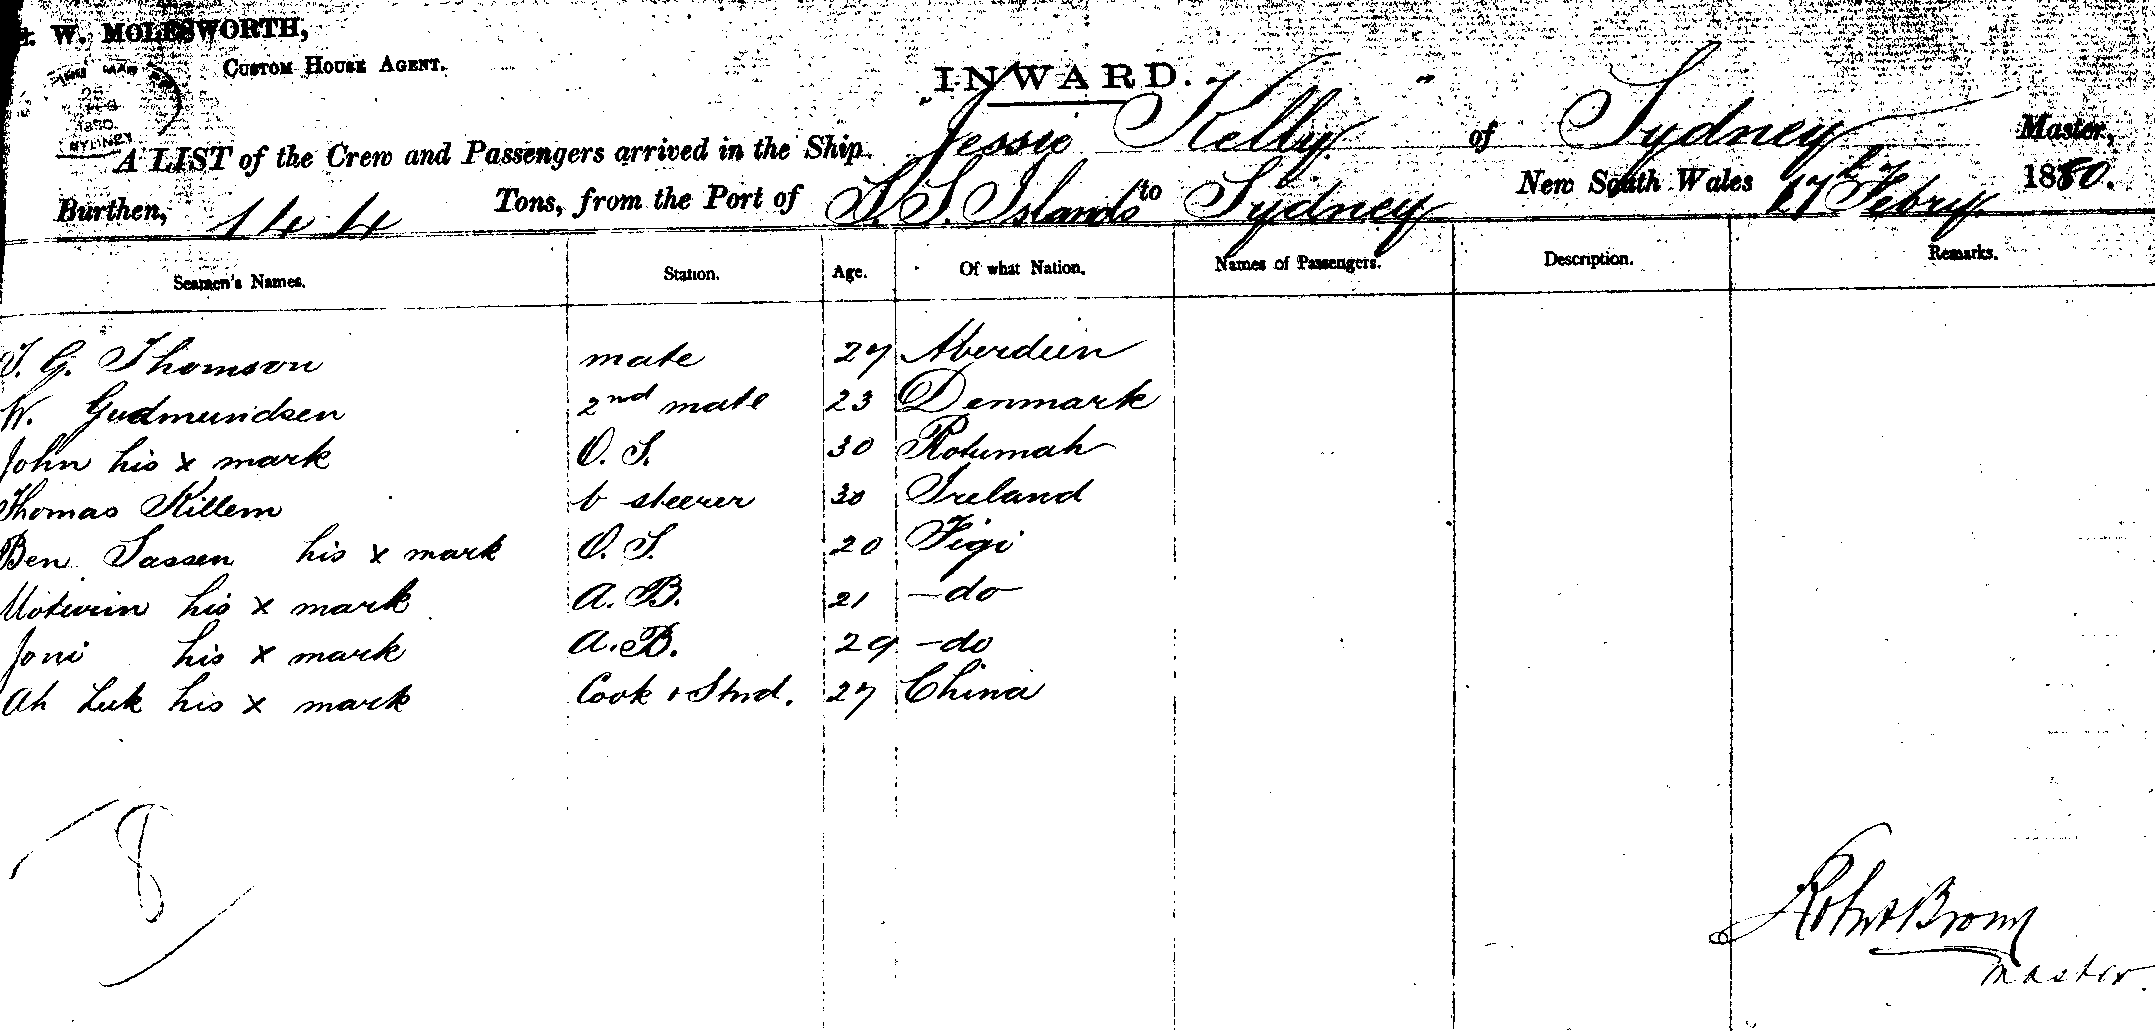 W. MOLESWORTH,
CUSTOM HOUSE AGENT.
INWARD.
1880
SYDNEY
A LIST of the Crew and Passengers arrived in the Ship "Jessie Kelly" of Sydney Master,
Burthen, 144 Tons, from the Port of S. S. Islands to Sydney New South Wales 17th Febry 1880.
Seamen's Names. Station. Age. Of what Nation. Names of Passengers. Description. Remarks.
T. G. Thomson mate 27 Aberdeen
W. Gudmundsen 2nd mate 23 Denmark
John his x mark O. S. 30 Rotumah
Thomas Killem b steerer 30 Ireland
Ben Sassen his x mark O. S. 20 Figi
his x mark A. B. 21 -do
Joni his x mark A. B. 29 -do
Ah Luk his x mark Cook + Stwd. 27 China
8
Robert Brown
master